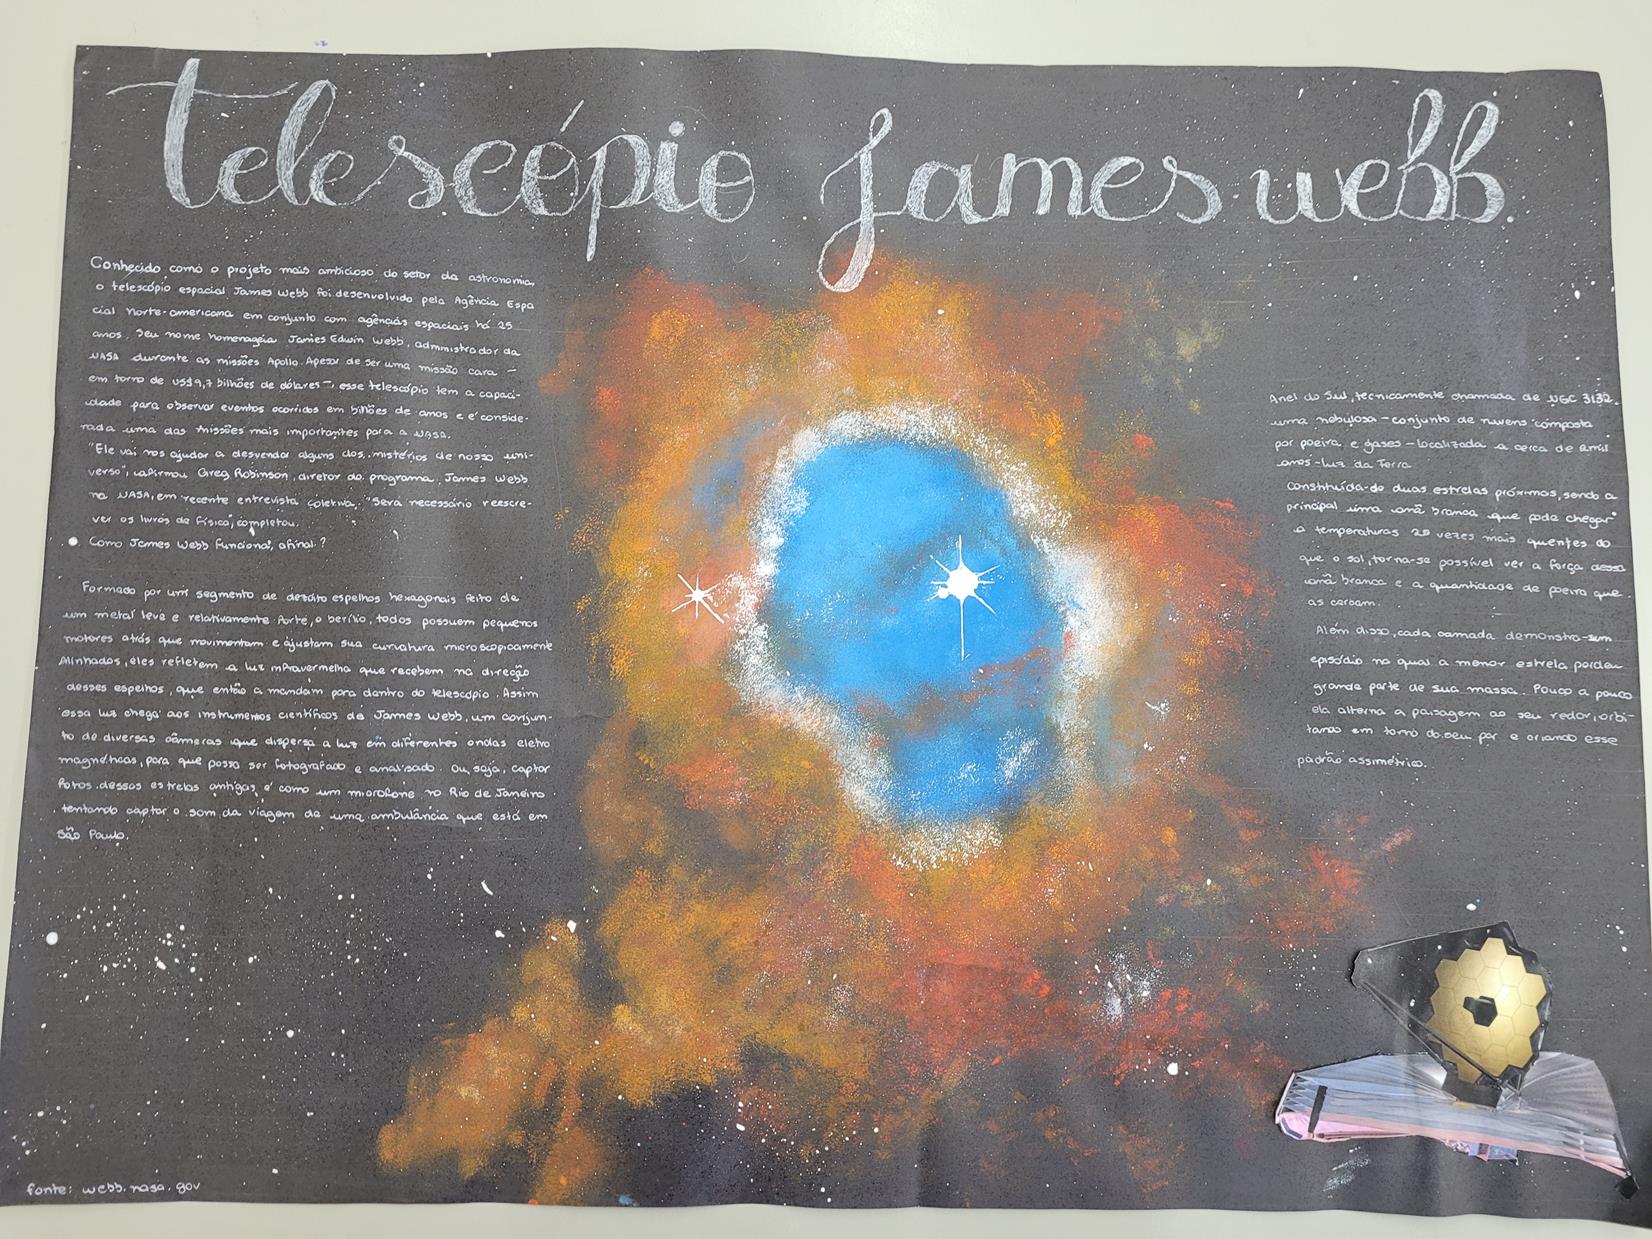 telescópio James webb.
Conhecido como o projeto mais ambicioso do setor da astronomia,
o telescópio espacial James Webb foi desenvolvido pela Agência Espa
cial Norte-americana em conjunto com agências espaciais há 25
anos. Seu nome homenageia James Edwin Webb, administrador da
NASA durante as missões Apollo. Apesar de ser uma missão cara -
em torno de US$9,7 bilhões de dólares -, esse telescópio tem a capaci-
dade para observar eventos ocorridos em bilhões de anos e é conside-
rada uma das missões mais importantes para a NASA.
"Ele vai nos ajudar a desvendar alguns dos mistérios de nosso uni-
verso", afirmou Greg Robinson, diretor do programa James Webb
na NASA, em recente entrevista coletiva. "Será necessário reescre-
ver os livros de física", completou.
Como James Webb funciona, afinal?
Formado por um segmento de dezoito espelhos hexagonais feito de
um metal leve e relativamente forte, o berílio, todos possuem pequenos
motores atrás que movimentam e ajustam sua curvatura microscopicamente
Alinhados, eles refletem a luz infravermelha que recebem na direção
desses espelhos, que então a mandam para dentro do telescópio. Assim
essa luz chega aos instrumentos científicos do James Webb, um conjun-
to de diversas câmeras que dispersa a luz em diferentes ondas eletro
magnéticas, para que possa ser fotografado e analisado. Ou seja, captar
fotos dessas estrelas antigas é como um microfone no Rio de Janeiro
tentando captar o som da viagem de uma ambulância que está em
São Paulo.
fonte: webb.nasa.gov
Anel do Sul, tecnicamente chamada de NGC 3132.
uma nebulosa - conjunto de nuvens composta
por poeira e gases - localizada a cerca de 2 mil
anos-luz da Terra
Constituída de duas estrelas próximas, sendo a
principal uma anã branca que pode chegar
a temperaturas 20 vezes mais quentes do
que o sol, torna-se possível ver a força dessa
anã branca e a quantidade de poeira que
as cercam.
Além disso, cada camada demonstra um
episódio no qual a menor estrela perdeu
grande parte de sua massa. Pouco a pouco
ela alterna a paisagem ao seu redor, orbi-
tando em torno do seu par e criando esse
padrão assimétrico.